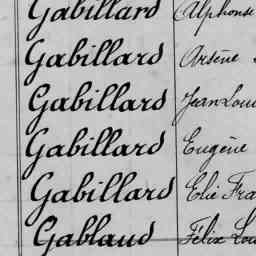 Gabillard Alphonse
Gabillard Arsène
Gabillard Jean Loui
Gabillard Eugène
Gabillard Elie Fra
Gablaud Félix Lou